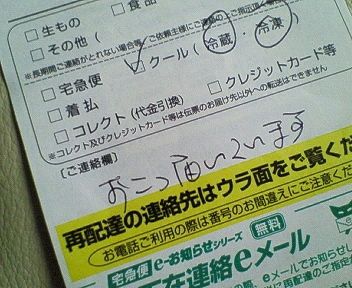 □ 生もの □ 食品
□ その他（
※長期間ご連絡がとれない場合等、ご依頼主様にご連絡の上、ご指示
□ クール（冷蔵・冷凍）
□ 宅急便
□ 着払 □ クレジットカード等
□ コレクト（代金引換）
※コレクト及びクレジットカード等は伝票のお届け先以外への転送はできません
［ご連絡欄］
おこって
います
再配達の連絡先はウラ面をご覧くだ
お電話ご利用の際は番号のお間違えにご注意くださ
宅急便e-お知らせシリーズ 無料
在連絡eメール